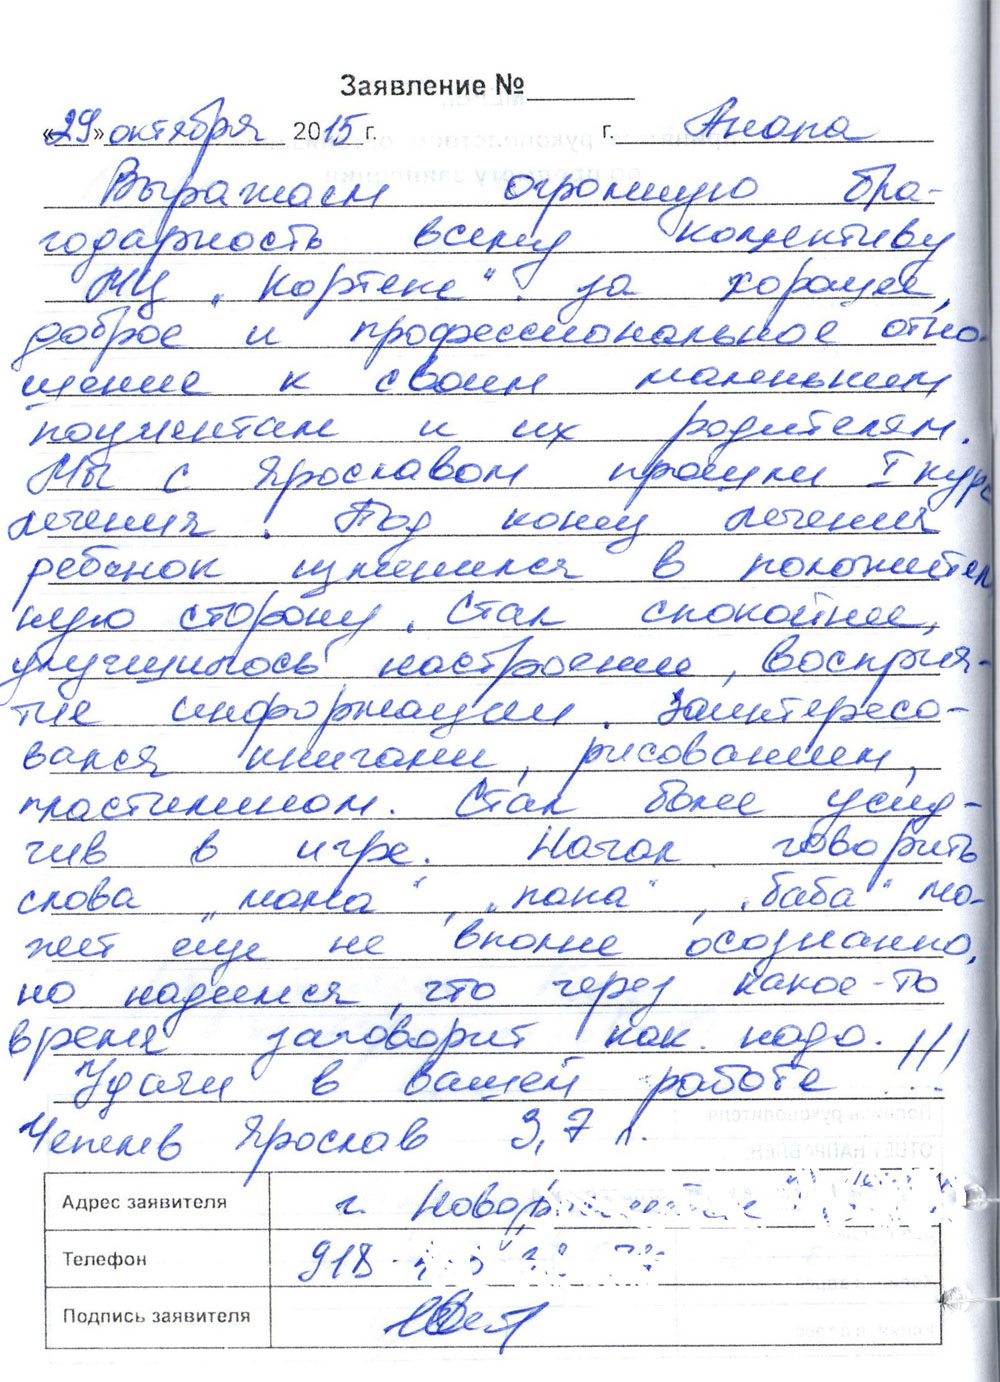 Заявление №
«29» октября 2015 г. г. Анапа
Выражаем огромную бла-
годарность всему коллективу
МЦ „Кортекс“. за хорошее,
доброе и профессиональное отно-
шение к своим маленьким
пациентам и их родителям.
Мы с Ярославом прошли I курс
лечения. Под конец лечения
ребенок изменился в положител
ную сторону. Стал спокойнее,
улучшилось настроение, восприя-
тие информации. Заинтересо-
вался книгами, рисованием,
пластилином. Стал более усид-
чив в игре. Начал говорить
слова „мама“, „папа“, „баба“ мо-
жет еще не вполне осознанно,
но надеемся, что через какое-то
время заговорит как надо.
Удачи в вашей работе !!!
Ярослав 3,7 л.
Адрес заявителя г.
Телефон 918
Подпись заявителя